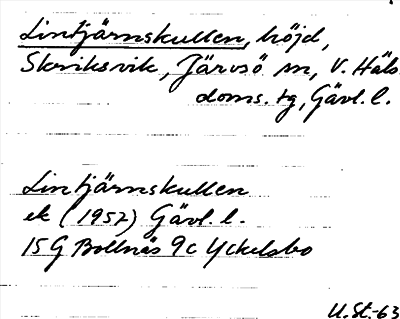 Lintjärnskullen, höjd,
Skriksvik, Järvsö sn, V. Häls.
doms. tg, Gävl. l.
Lintjärnskullen
ek (1952) Gävl. l.
15G Bollnäs 9c Yckelsbo
U.St.-63